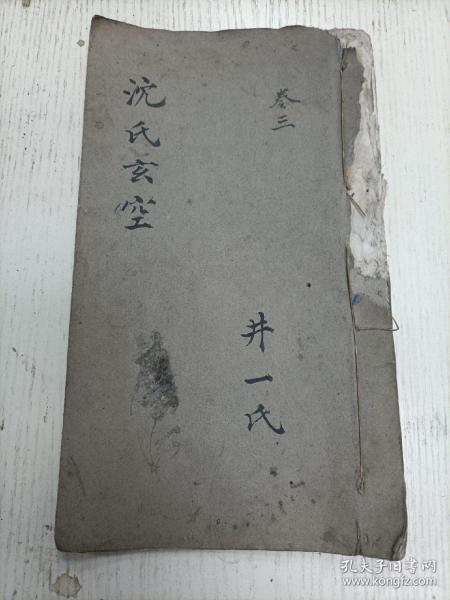 卷三
井一氏
沈氏玄空
孔夫子旧书网
www.kongfz.com